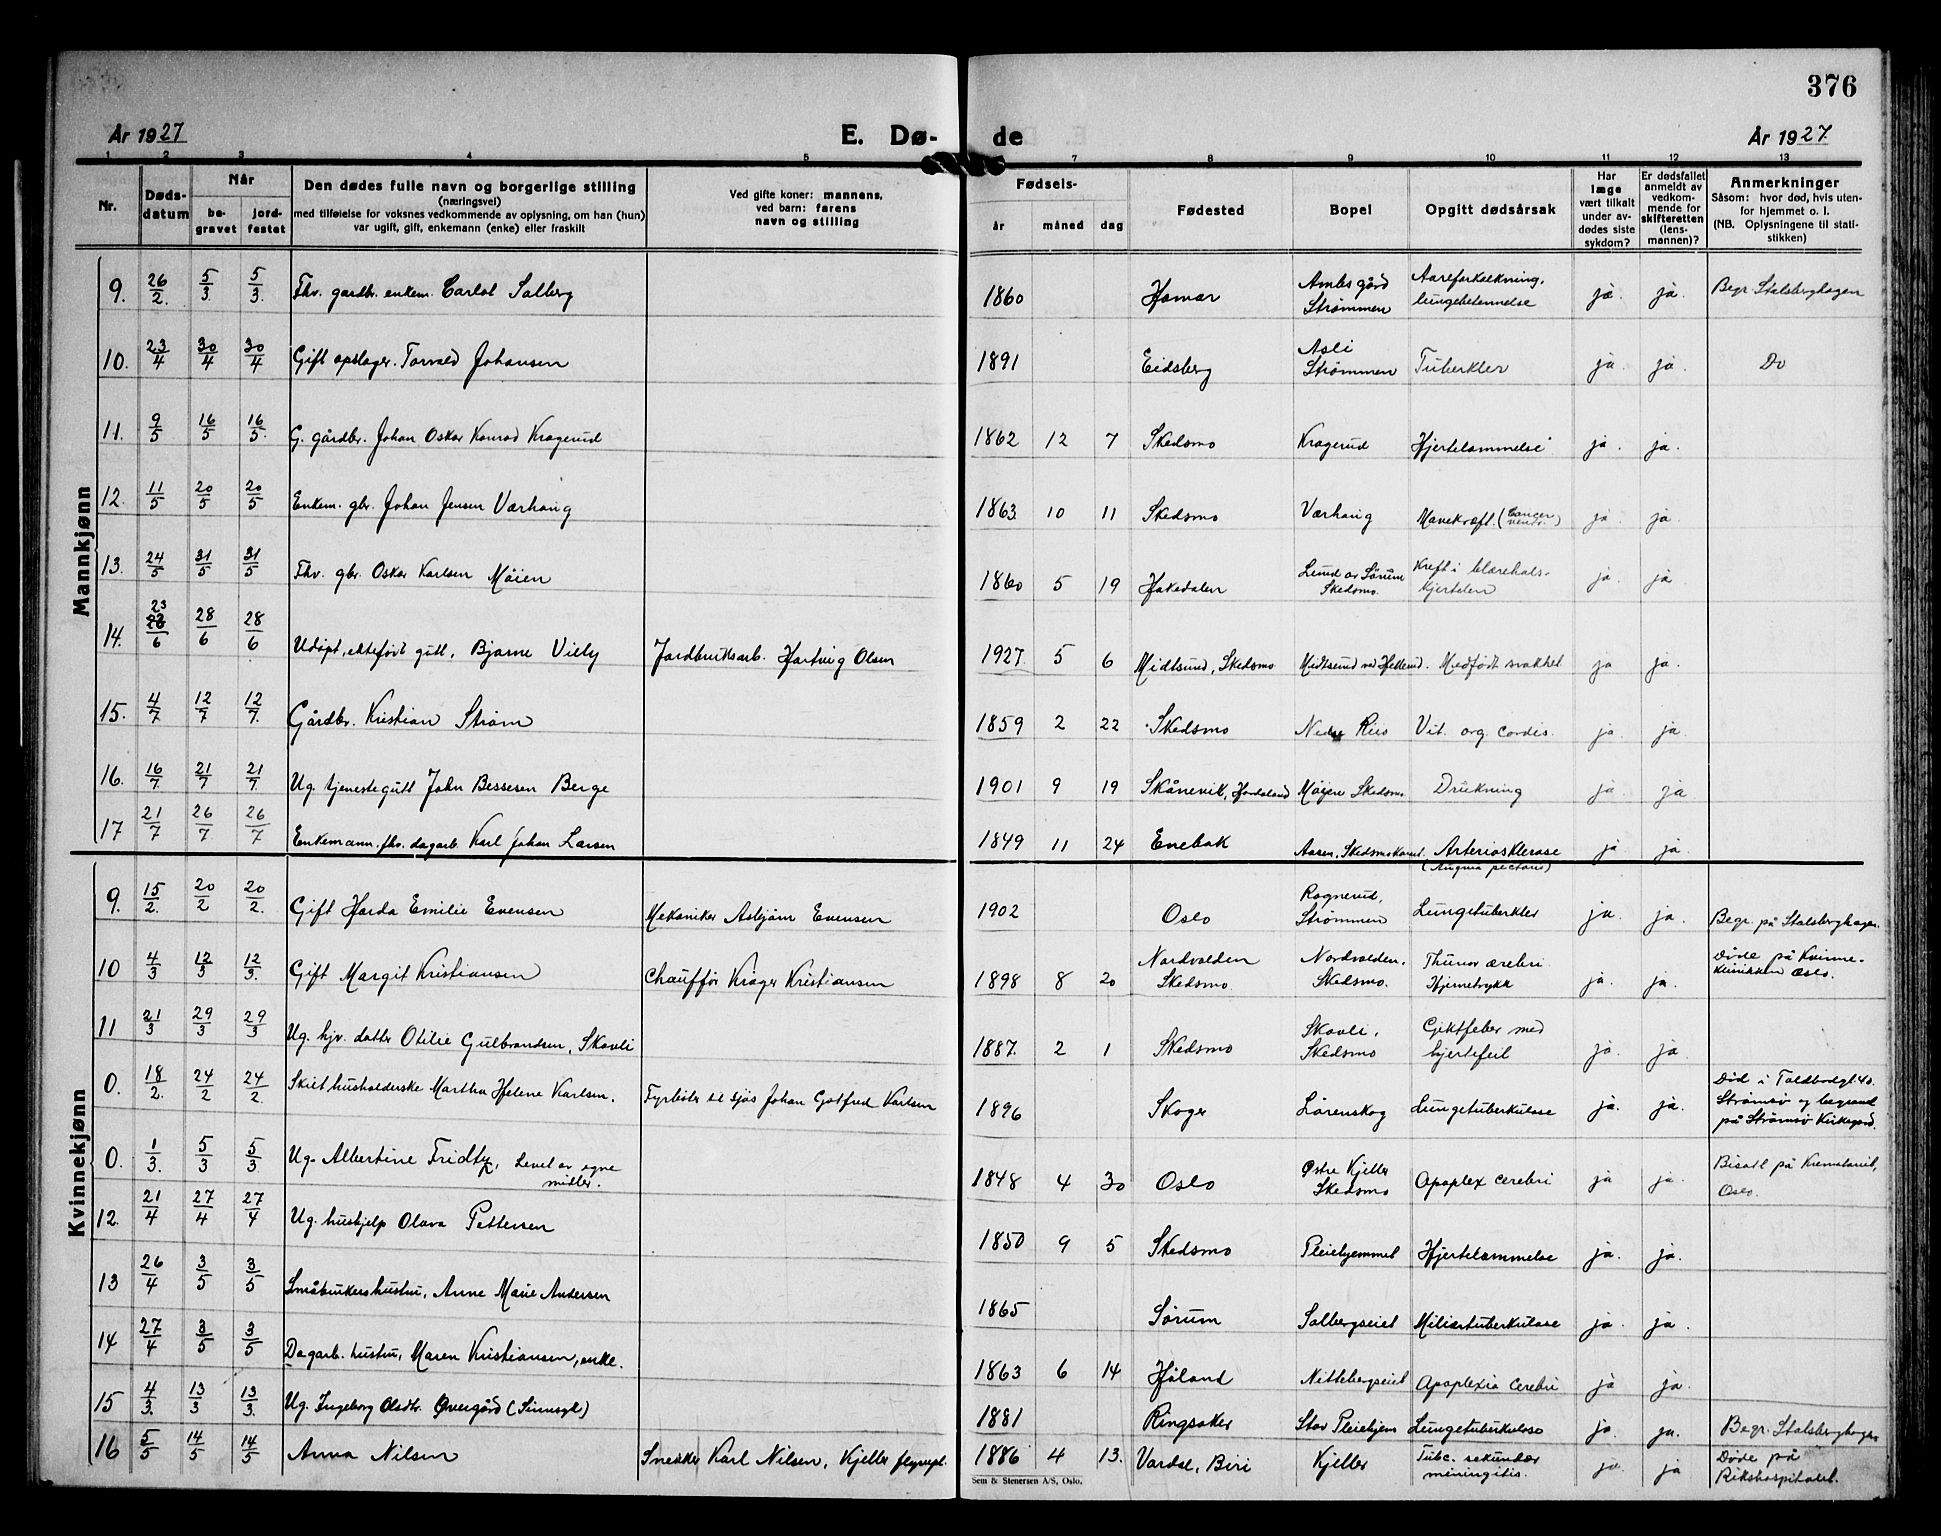 376
År 1927
E. Dø-
de
År 1927.
1 2 3 4 5 7 8 9 10 11 12 13
Nr.
Døds-
datum
Når
be-
gravet
jord-
festet
Den dødes fulle navn og borgerlige stilling
(næringsvei)
med tilføielse for voksnes vedkommende av oplysning, om han (hun)
var ugift, gift, enkemann (enke) eller fraskilt
Ved gifte koner: mannens,
ved barn: farens
navn og stilling
Fødsels-
år måned dag
Fødested
Bopel
Opgitt dødsårsak
Har
læge
vært tilkalt
under av-
dødes siste
sykdom?
Er dødsfallet
anmeldt av
vedkom-
mende for
skifteretten
(lens-
mannen)?
Anmerkninger
Såsom: hvor død, hvis uten-
for hjemmet o. l.
(NB. Oplysningene til stati-
stikken)
Mannkjønn
9. 26/2. 5/3. 5/3. Fhv. gardbr. enkem. Carlot Solberg 1860 Hamar Ambs gård
Strømmen Aareforkalkning,
lungebetennelse ja. ja. Begr. Stalsberghagen
10. 23/4 30/4 30/4 Gift opslager. Torvald Johansen 1891 Eidsberg Asli
Strømmen Tuberkler ja. ja. Do
11. 9/5 16/5 16/5. G. gårdbr. Johan Oskar Konrad Kragerud 1862 12 7 Skedsmo Kragerud Hjertelammelse ja. ja.
12. 11/5 20/5 20/5 Enkem. gbr. Johan Jensen Værhaug 1863. 10 11 Skedsmo Værhaug Mavekræft. (Cancer ventr.) ja. ja.
13. 24/5 31/5 31/5 Fhv. gbr. Oskar Karlsen Møien 1860 5 19 Hakedalen Lund av Sørum
Skedsmo. Kreft i blærehals-
kjertelen ja. ja
14. 23/6 28/6 28/6 Udøpt, ektefødt gutt, Bjarne Villy Jordbruksarb. Hartvig Olsen 1927. 5 6 Midtsund, Skedsmo Midtsund ved Hellerud. Medfødt svakhet ja ja.
15. 4/7 12/7. 12/7. Gårdbr. Kristian Strøm 1859 2 22 Skedsmo Nedre Riis Vit. org. cordis. ja. ja.
16. 16/7. 21/7 21/7 Ug. tjenestegutt John Bessesen Berge 1901 9 19 Skånevik, Hordaland Møien Skedsmo Drukning ja. ja
17 21/7 26/7 26/7 Enkemann. fhv. dagarb. Karl Johan Larsen 1849 11 24 Enebak Aasen, Skedsmokorset. Arteriosklerose
(Angina pectoris) ja ja.
Kvinnekjønn
9. 15/2. 20/2 20/2. Gift Harda Emilie Evensen Mekaniker Asbjørn Evensen 1902 Oslo Rognerud,
Strømmen Lungetuberkler ja. ja. Begr. på Stalsberghagen.
10 4/3 12/3 12/3. Gift Margit Kristiansen Chauffør Krøger Kristiansen 1898 8 20 Nordvolden
Skedsmo. Nordvolden,
Skedsmo. Thumor cerebri.
Hjernetrykk ja. ja. Døde på Kvinne-
klinikken Oslo.
11 21/3 29/3 29/3 Ug. hjv. datter Otilie Gulbrandsen, Skovli 1887. 2 1 Skedsmo Skovli,
Skedsmo Giktfeber med
hjertefeil ja. ja
0. 18/2. 24/2 24/2 Skilt husholderske Martha Helene Karlsen. Fyrbøter til sjøs Johan Gotfred Karlsen 1896 Skoger Lørenskog Lungetuberkulose ja. ja. Død i Toldbodgt. 40.
Strømsø og begravet
på Strømsø Kirkegård.
0. 1/3. 5/3 5/3 Ug. Albertine Fridtz, Levet av egne
midler. 1848 4 30 Oslo Østre Kjeller
Skedsmo Apoplex cerebri ja ja. Bisatt på Krematoriet,
Oslo.
12. 21/4 27/4 27/4 Ug. hushjelp Olava Pettersen 1850 9 5 Skedsmo Pleiehjemmet Hjertelammelse ja. ja.
13 26/4 3/5 3/5 Småbrukers hustru, Anne Marie Andersen 1865 Sørum Solbergseiet Miliærtuberkulose ja. ja.
14 27/4 3/5 3/5 Dagarb. hustru, Maren Kristiansen, enke. 1863 6 14 Høland Nittebergseiet Apoplexia cerebri ja ja.
15 4/3. 13/3 13/3. Ug. Ingeborg Olsdtr. Øvergård (Sinnssyk) 1881 Ringsaker Stav Pleiehjem Lungetuberkulose ja. ja. Begr. Stalsberghagen
16 5/5 14/5 14/5 Anna Nilsen Snekker Karl Nilsen, Kjeller flyvepl. 1886 4 13. Vardal, Biri Kjeller Tubc. sekundær
meningitis. ja. ja Døde på
Rikshospitalet.
Sem & Stenersen A/S, Oslo.